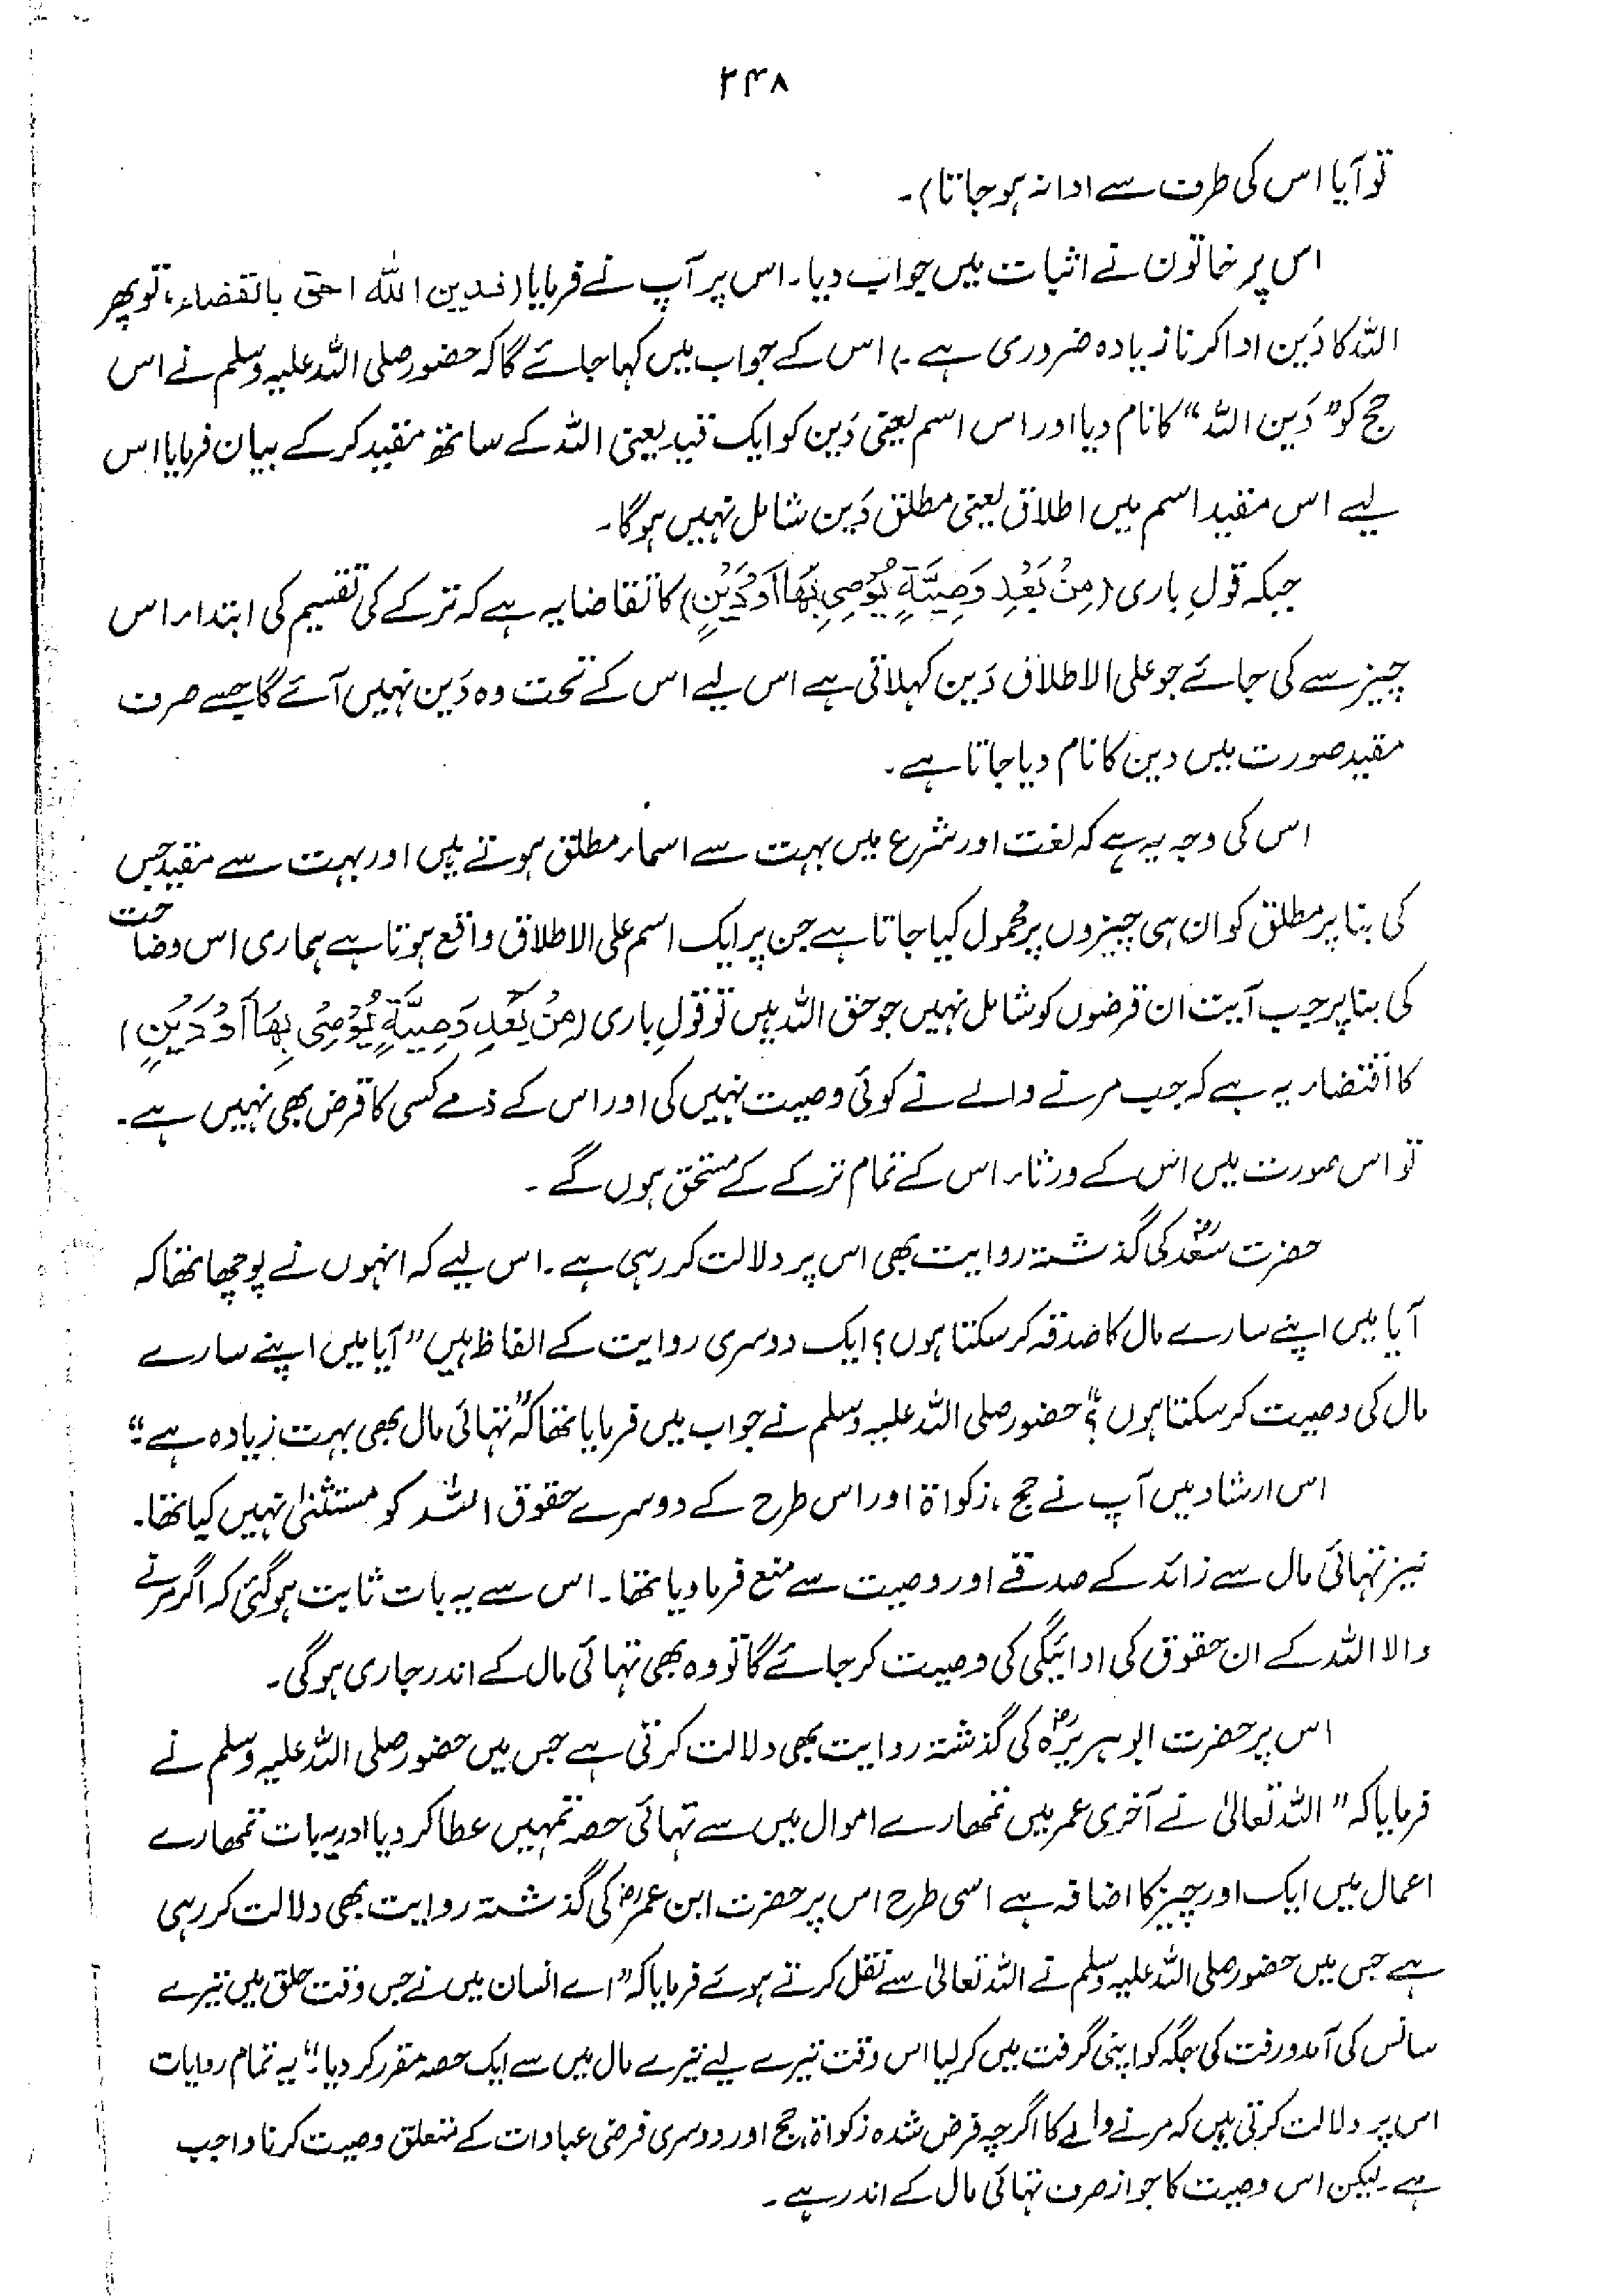 ۲۴۸
تو آیا اس کی طرف سے ادا نہ ہو جاتا)۔
اس پر خاتون نے اثبات میں جواب دیا۔ اس پر آپ نے فرمایا (فدین اللہ احق بالقضاء، تو پھر
اللہ کا دَین ادا کرنا زیادہ ضروری ہے۔) اس کے جواب میں کہا جائے گا کہ حضور صلی اللہ علیہ وسلم نے اس
حج کو "دَین اللہ" کا نام دیا اور اس اسم یعنی دَین کو ایک قید یعنی اللہ کے ساتھ مقید کر کے بیان فرمایا اس
لیے اس مقید اسم میں اطلاق یعنی مطلق دَین شامل نہیں ہوگا۔
جبکہ قولِ باری (مِنْ بَعْدِ وَصِیَّةٍ یُّوْصِیْ بِهَا اَوْ دَیْنٍ) کا تقاضا یہ ہے کہ ترکے کی تقسیم کی ابتداء اس
چیز سے کی جائے جو علی الاطلاق دَین کہلاتی ہے اس لیے اس کے تحت وہ دَین نہیں آئے گا جسے صرف
مقید صورت میں دین کا نام دیا جاتا ہے۔
اس کی وجہ یہ ہے کہ لغت اور شرع میں بہت سے اسماء مطلق ہوتے ہیں اور بہت سے مقید جس
کی بنا پر مطلق کو ان ہی چیزوں پر محمول کیا جاتا ہے جن پر ایک اسم علی الاطلاق واقع ہوتا ہے ہماری اس وضاحت
کی بنا پر جب آیت ان قرضوں کو شامل نہیں جو حق اللہ ہیں تو قولِ باری (مِنْ بَعْدِ وَصِیَّةٍ یُّوْصِیْ بِهَا اَوْ دَیْنٍ)
کا اقتضاء یہ ہے کہ جب مرنے والے نے کوئی وصیت نہیں کی اور اس کے ذمے کسی کا قرض بھی نہیں ہے۔
تو اس صورت میں اس کے ورثاء اس کے تمام ترکے کے مستحق ہوں گے۔
حضرت سعدؓ کی گذشتہ روایت بھی اس پر دلالت کر رہی ہے۔ اس لیے کہ انہوں نے پوچھا تھا کہ
آیا میں اپنے سارے مال کا صدقہ کر سکتا ہوں؟ ایک دوسری روایت کے الفاظ ہیں "آیا میں اپنے سارے
مال کی وصیت کر سکتا ہوں؟" حضور صلی اللہ علیہ وسلم نے جواب میں فرمایا تھا کہ "تہائی مال بھی بہت زیادہ ہے۔"
اس ارشاد میں آپ نے حج، زکواۃ اور اس طرح کے دوسرے حقوق اللہ کو مستثنیٰ نہیں کیا تھا۔
نیز تہائی مال سے زائد کے صدقے اور وصیت سے منع فرما دیا تھا۔ اس سے یہ بات ثابت ہو گئی کہ اگر مرنے
والا اللہ کے ان حقوق کی ادائیگی کی وصیت کر جائے گا تو وہ بھی تہائی مال کے اندر جاری ہو گی۔
اس پر حضرت ابوہریرہؓ کی گذشتہ روایت بھی دلالت کرتی ہے جس میں حضور صلی اللہ علیہ وسلم نے
فرمایا کہ "اللہ تعالیٰ نے آخری عمر میں تمھارے اموال میں سے تہائی حصہ تمہیں عطا کر دیا اور یہ بات تمھارے
اعمال میں ایک اور چیز کا اضافہ ہے اسی طرح اس پر حضرت ابن عمرؓ کی گذشتہ روایت بھی دلالت کر رہی
ہے جس میں حضور صلی اللہ علیہ وسلم نے اللہ تعالیٰ سے نقل کرتے ہوئے فرمایا کہ "اے انسان میں نے جس وقت حلق میں تیرے
سانس کی آمد و رفت کی جگہ کو اپنی گرفت میں کر لیا اس وقت تیرے لیے تیرے مال میں سے ایک حصہ مقرر کر دیا۔" یہ تمام روایات
اس پر دلالت کرتی ہیں کہ مرنے والے کا اگرچہ فرض شدہ زکواۃ، حج اور دوسری فرضی عبادات کے متعلق وصیت کرنا واجب
ہے۔ لیکن اس وصیت کا جواز صرف تہائی مال کے اندر ہے۔